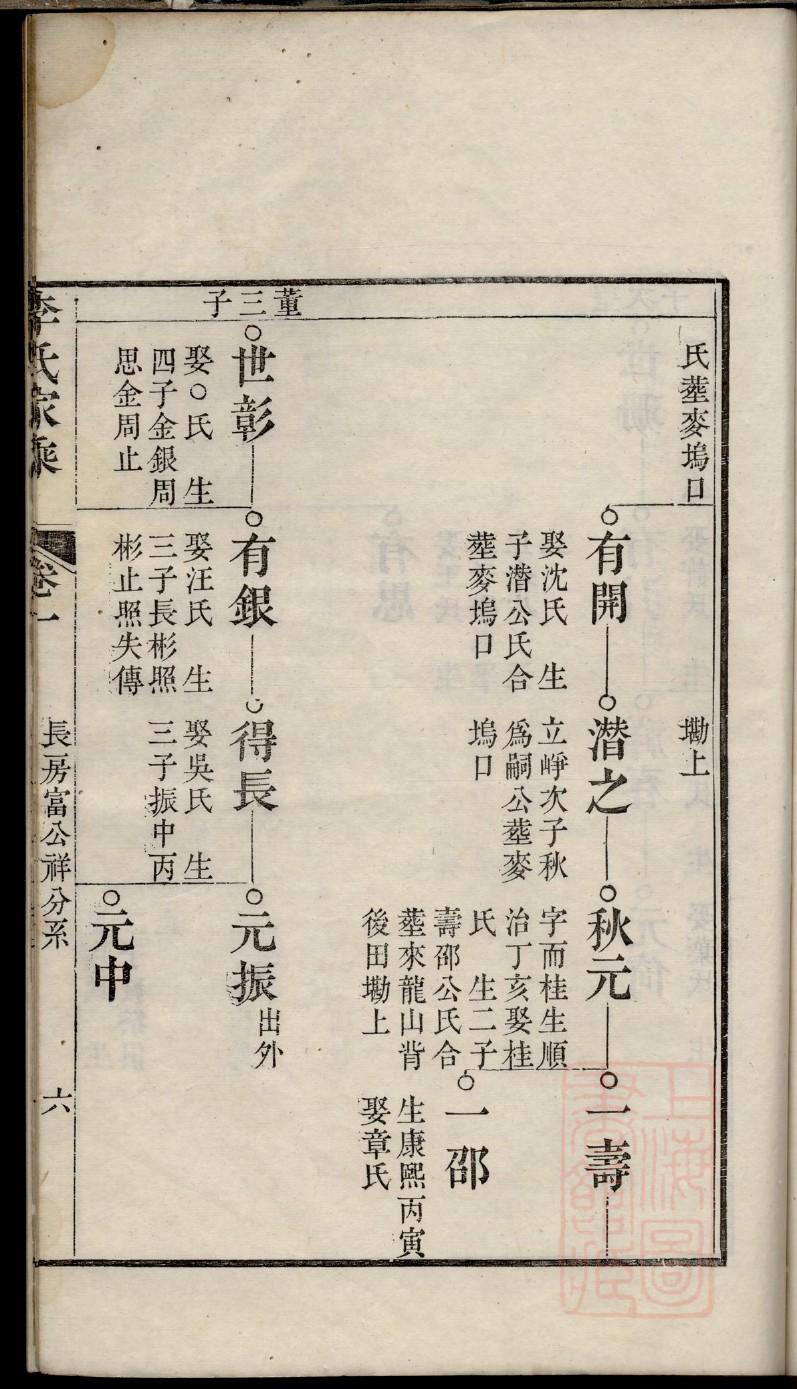 氏塟麥塢口
塸上
有開
娶沈氏　生
子潛公氏合
塟麥塢口
潛之
立崢次子秋
爲嗣公塟麥
塢口
秋元
字而桂生順
治丁亥娶桂
氏　生二子
壽邵公氏合
塟來龍山背
後田塸上
一壽
一邵
生康熙丙寅
娶章氏
董三子
世彰
娶○氏　生
四子金銀周
思金周止
有銀
娶汪氏　生
三子長彬照
彬止照失傳
得長
娶吳氏　生
三子振中丙
元振
出外
元中
李氏家乘
卷一
長房富公祥分系
六